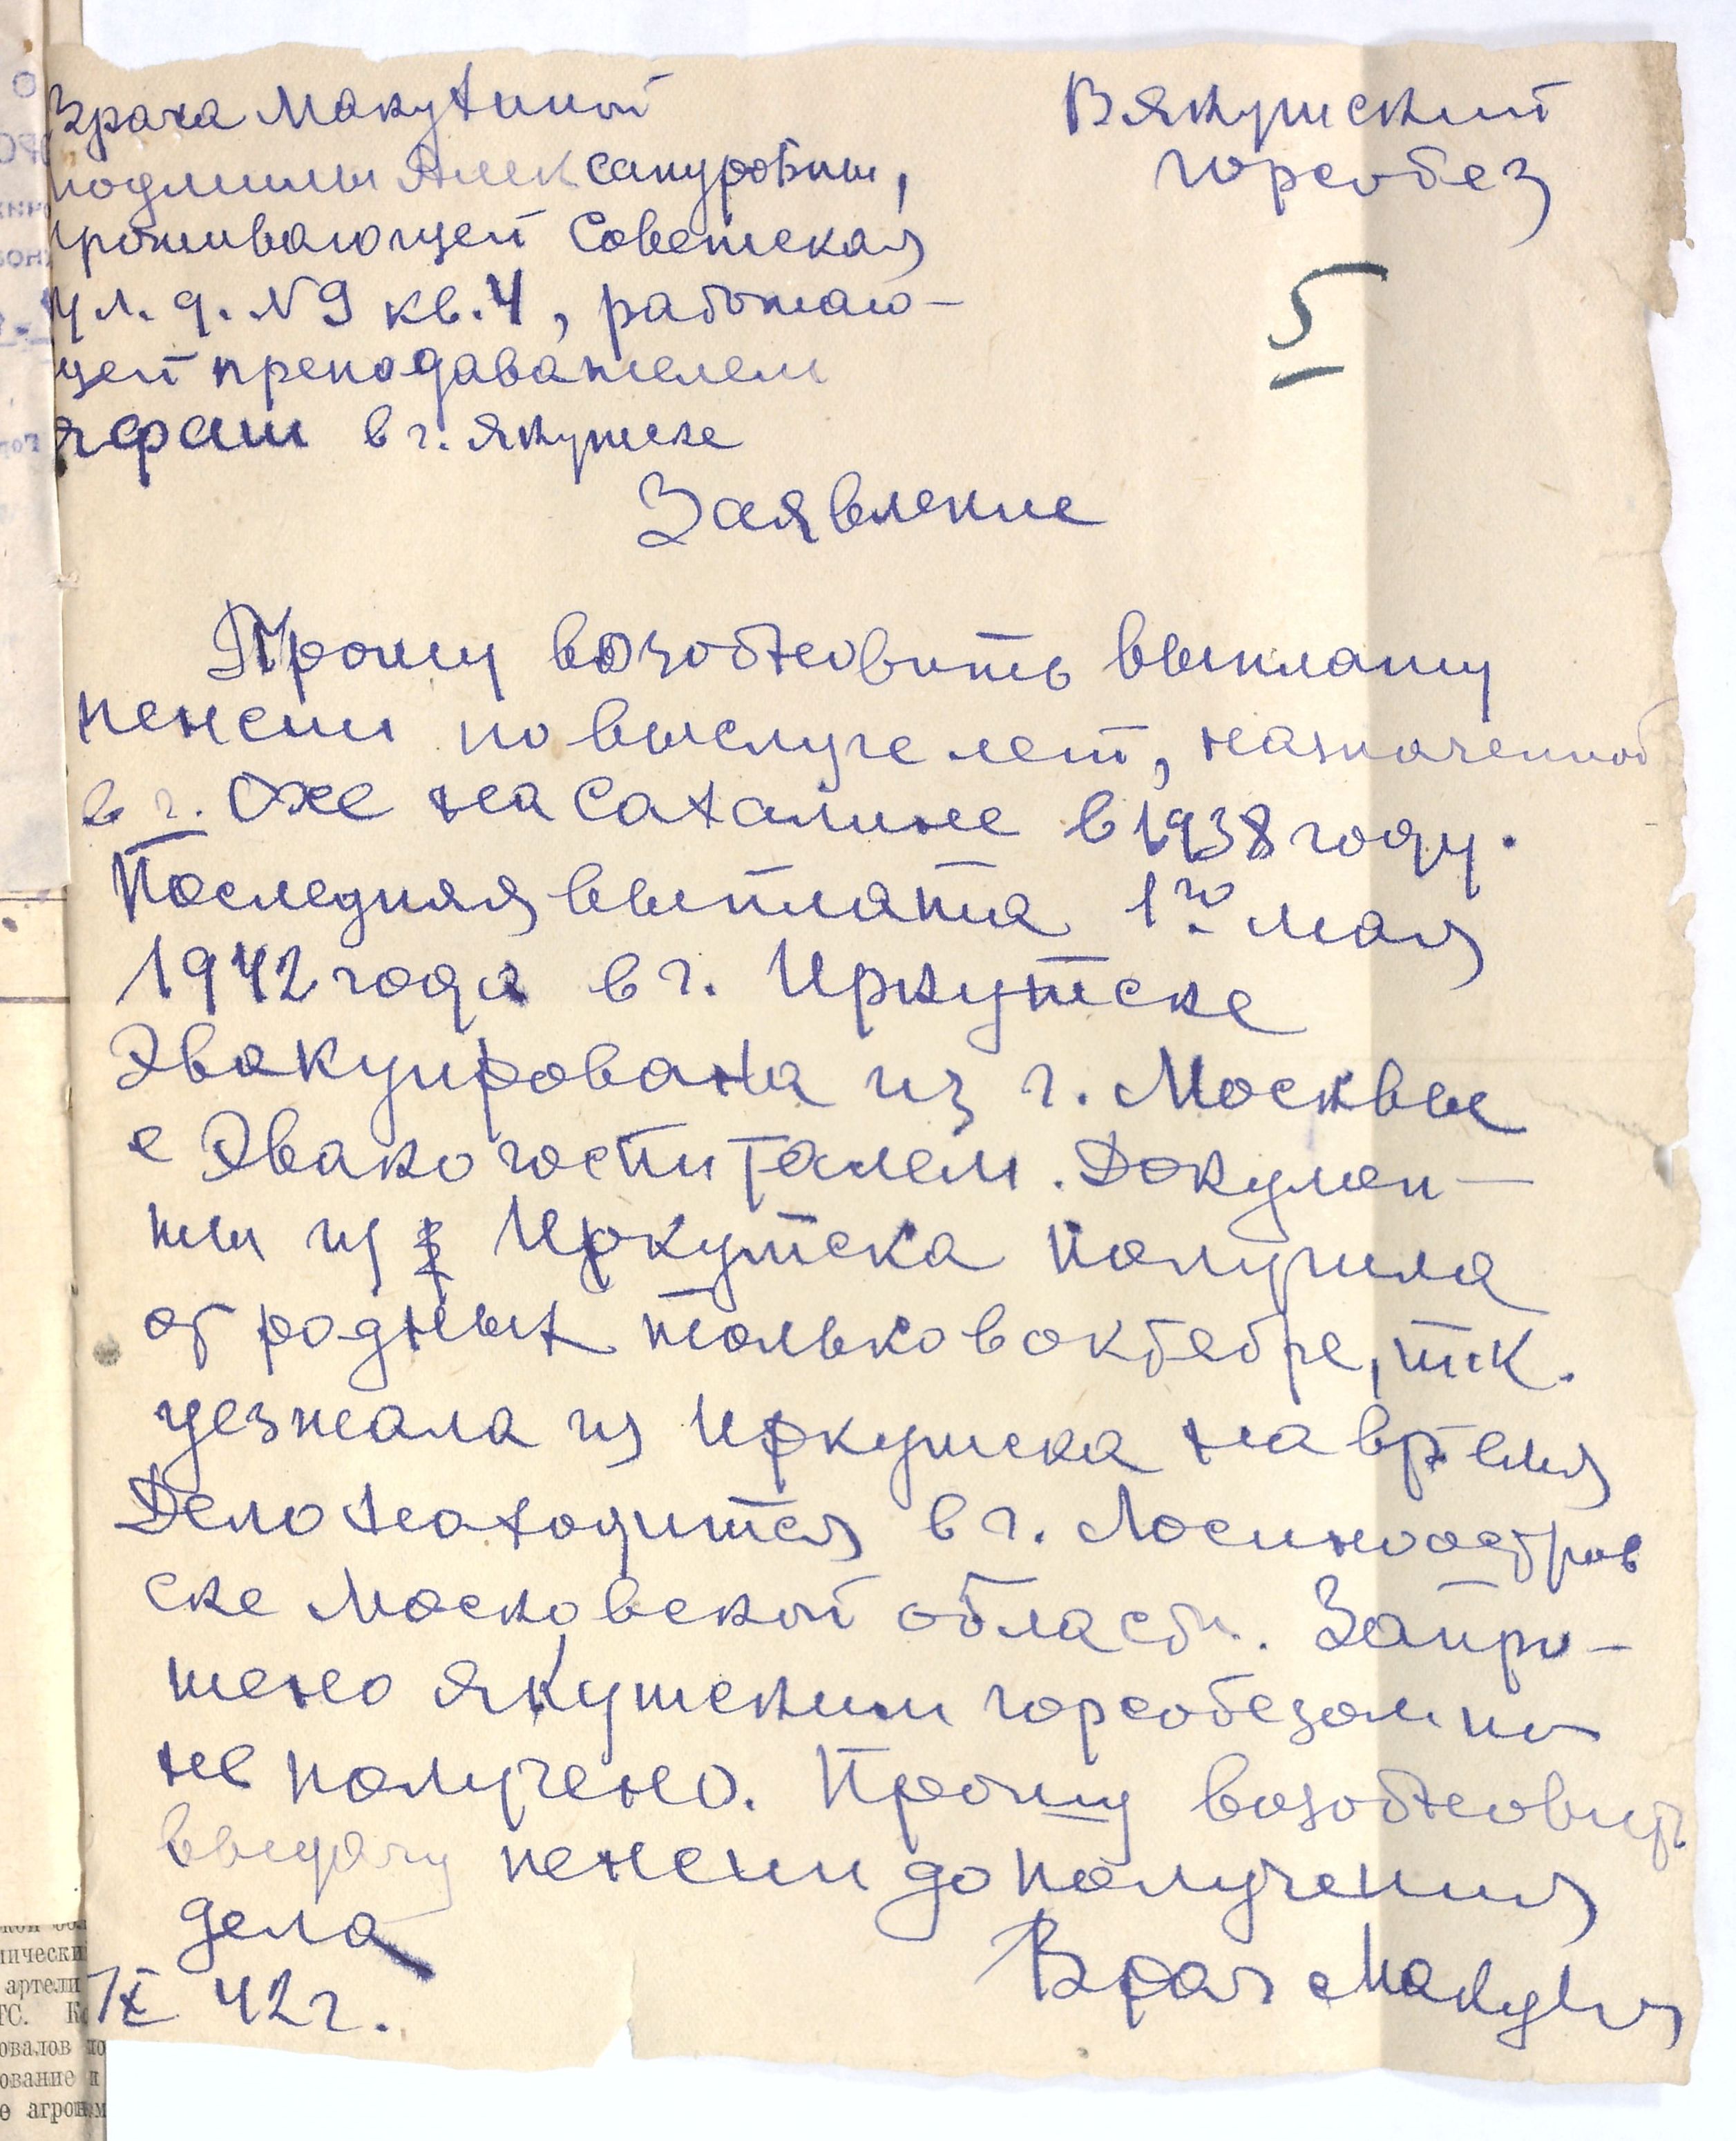 В якутский
горсобез
5
Врача Макухиной
Людмилы Александровны,
проживающей Советская
ул. д. N 9 кв. 4, работаю-
щей преподавателем
в г. Якутске
Заявление
Прошу возобновить выплату
пенсии по выслуге лет, назначенной
в г. Охе на Сахалине в 1938 году.
Последняя выплата 1го мая
1942 года в г. Иркутске
Эвакуирована из г. Москвы
с Эвакогоспиталем. Докумен-
ты из Иркутска получила
от родных только в октебре, т.к.
уезжала из Иркутска на время
Дело находится в г. Лосиноостров
ске Московской области. Запро-
шено якутским горсобезом но
не получено. Прошу возобновить
выдачу пенсии до получения
дела
Врач
42 г.